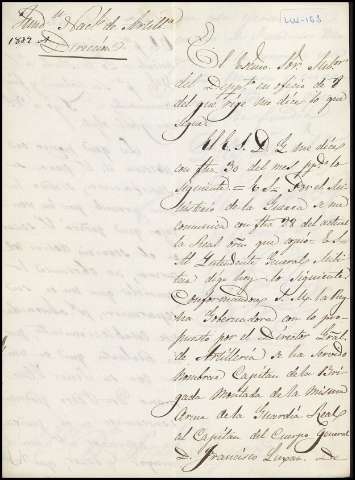 LUI-163
Fund.n Nac.l de Artill.a
1837
Direccion
El Exmo. Sor.
del Depp.to en oficio de 8
del que rige me dice lo que
sigue
D. G. me dice
con fha 30 del mes pp.do lo
siguiente = E. S. = Por el Mi
nisterio de la Guerra se me
comunica con fha 28 del actual
la Real orn que copio = E. S. =
Al Intendente General Mili
tar digo hoy lo siguiente =
Conformandose S. M. la Rey
na Gobernadora con lo pro
puesto por el Director Gral.
de Artilleria se ha servido
nombrar Capitan de la Bri
gada Montada de la misma
Arma de la Guardia Real
al Capitan del Cuerpo General
D. Francisco Luxan. De